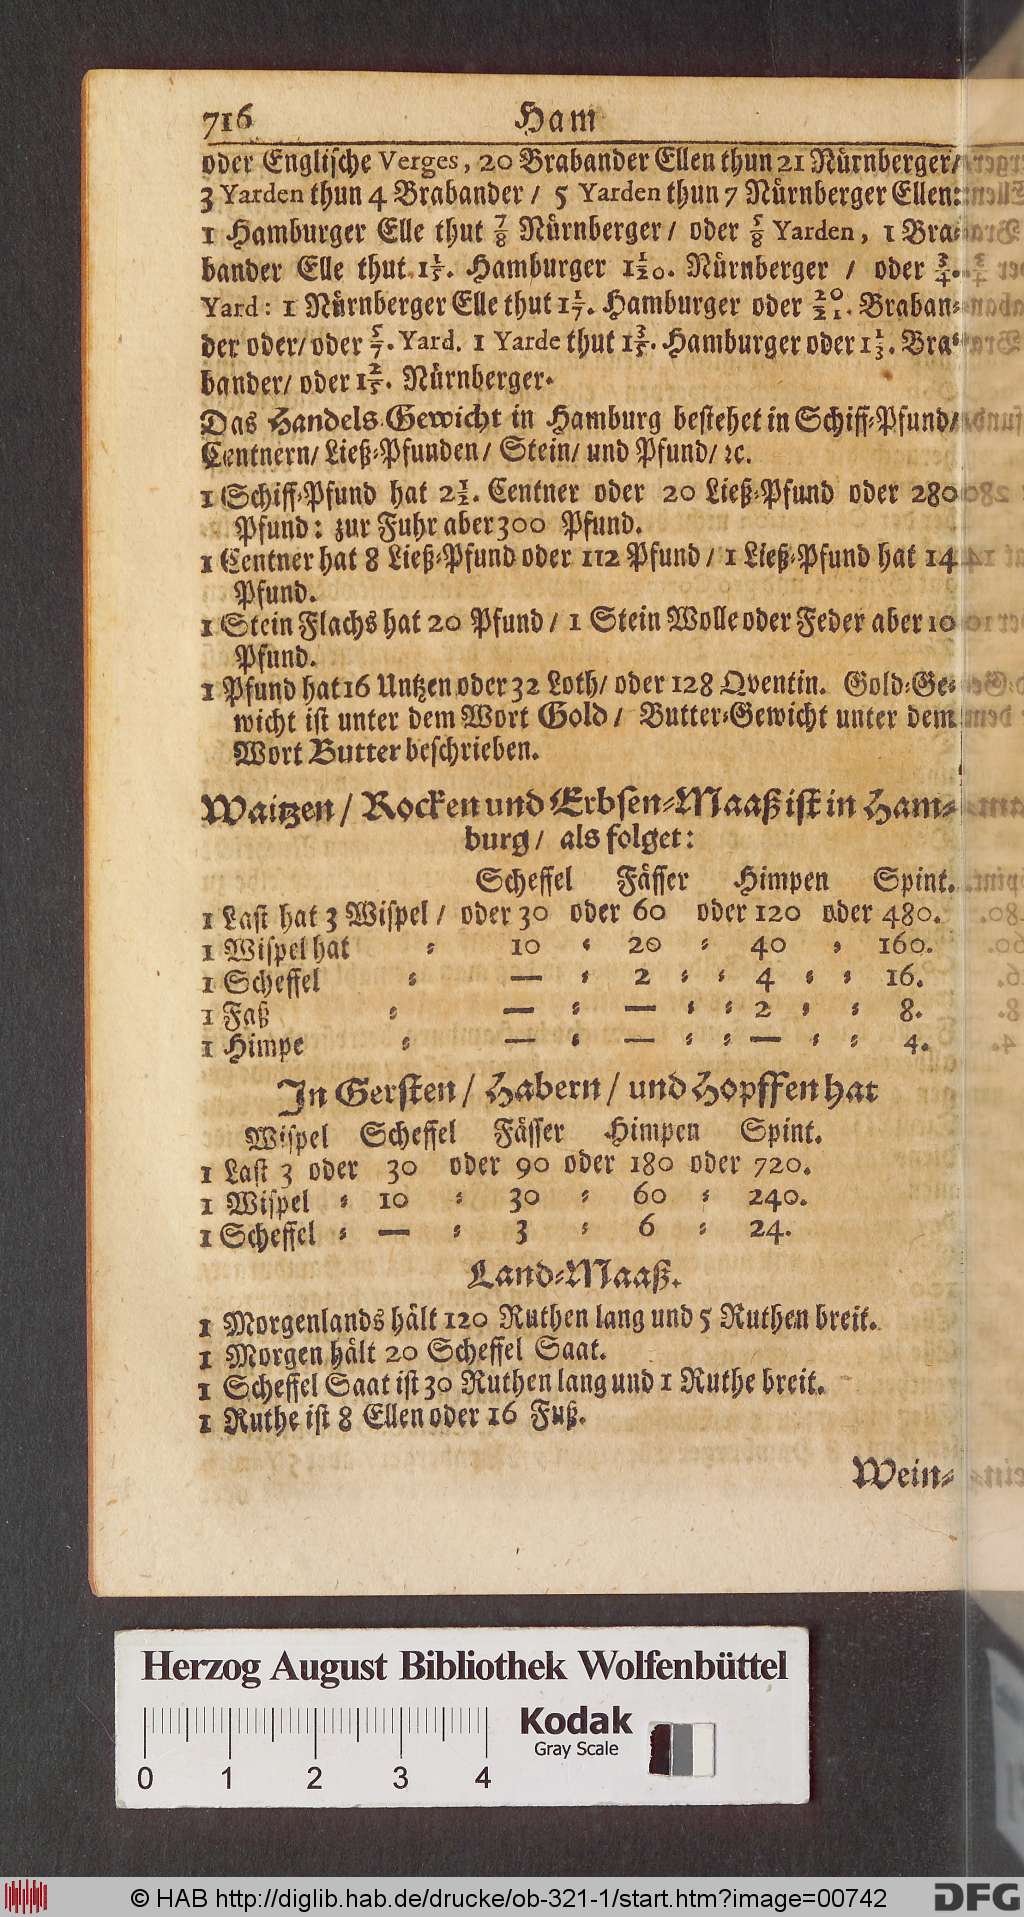 716 Ham
oder Englische Verges, 20 Brabander Ellen thun 21 Nürnberger/
3 Yarden thun 4 Brabander / 5 Yarden thun 7 Nürnberger Ellen:
1 Hamburger Elle thut 7/8 Nürnberger/ oder 5/8 Yarden, 1 Bra-
bander Elle thut 1 1/5. Hamburger 1 1/20. Nürnberger / oder 3/4.
Yard: 1 Nürnberger Elle thut 1 1/7. Hamburger oder 20/21. Braban-
der oder/ oder 5/7. Yard. 1 Yarde thut 1 3/5. Hamburger oder 1 1/3. Bra-
bander/ oder 1 2/5. Nürnberger.
Das Handels-Gewicht in Hamburg bestehet in Schiff-Pfund/
Centnern/ Ließ-Pfunden/ Stein/ und Pfund/ ꝛc.
1 Schiff-Pfund hat 2 1/2. Centner oder 20 Ließ-Pfund oder 280
Pfund: zur Fuhr aber 300 Pfund.
1 Centner hat 8 Ließ-Pfund oder 112 Pfund / 1 Ließ-Pfund hat 14
Pfund.
1 Stein Flachs hat 20 Pfund / 1 Stein Wolle oder Feder aber 10
Pfund.
1 Pfund hat 16 Untzen oder 32 Loth/ oder 128 Qventin. Gold-Ge-
wicht ist unter dem Wort Gold / Butter-Gewicht unter dem
Wort Butter beschrieben.
Waitzen / Rocken und Erbsen-Maaß ist in Ham-
burg / als folget:
Scheffel Fässer Himpen Spint.
1 Last hat 3 Wispel / oder 30 oder 60 oder 120 oder 480.
1 Wispel hat - 10 - 20 - 40 - 160.
1 Scheffel - — - 2 - - 4 - - 16.
1 Faß - — - — - - 2 - - 8.
1 Himpe - — - — - - — - - 4.
In Gersten / Habern / und Hopffen hat
Wispel Scheffel Fässer Himpen Spint.
1 Last 3 oder 30 oder 90 oder 180 oder 720.
1 Wispel - 10 - 30 - 60 - 240.
1 Scheffel - — - 3 - 6 - 24.
Land-Maaß.
1 Morgenlands hält 120 Ruthen lang und 5 Ruthen breit.
1 Morgen hält 20 Scheffel Saat.
1 Scheffel Saat ist 30 Ruthen lang und 1 Ruthe breit.
1 Ruthe ist 8 Ellen oder 16 Fuß.
Wein-
Herzog August Bibliothek Wolfenbüttel
Kodak
Gray Scale
0 1 2 3 4
© HAB http://diglib.hab.de/drucke/ob-321-1/start.htm?image=00742
DFG